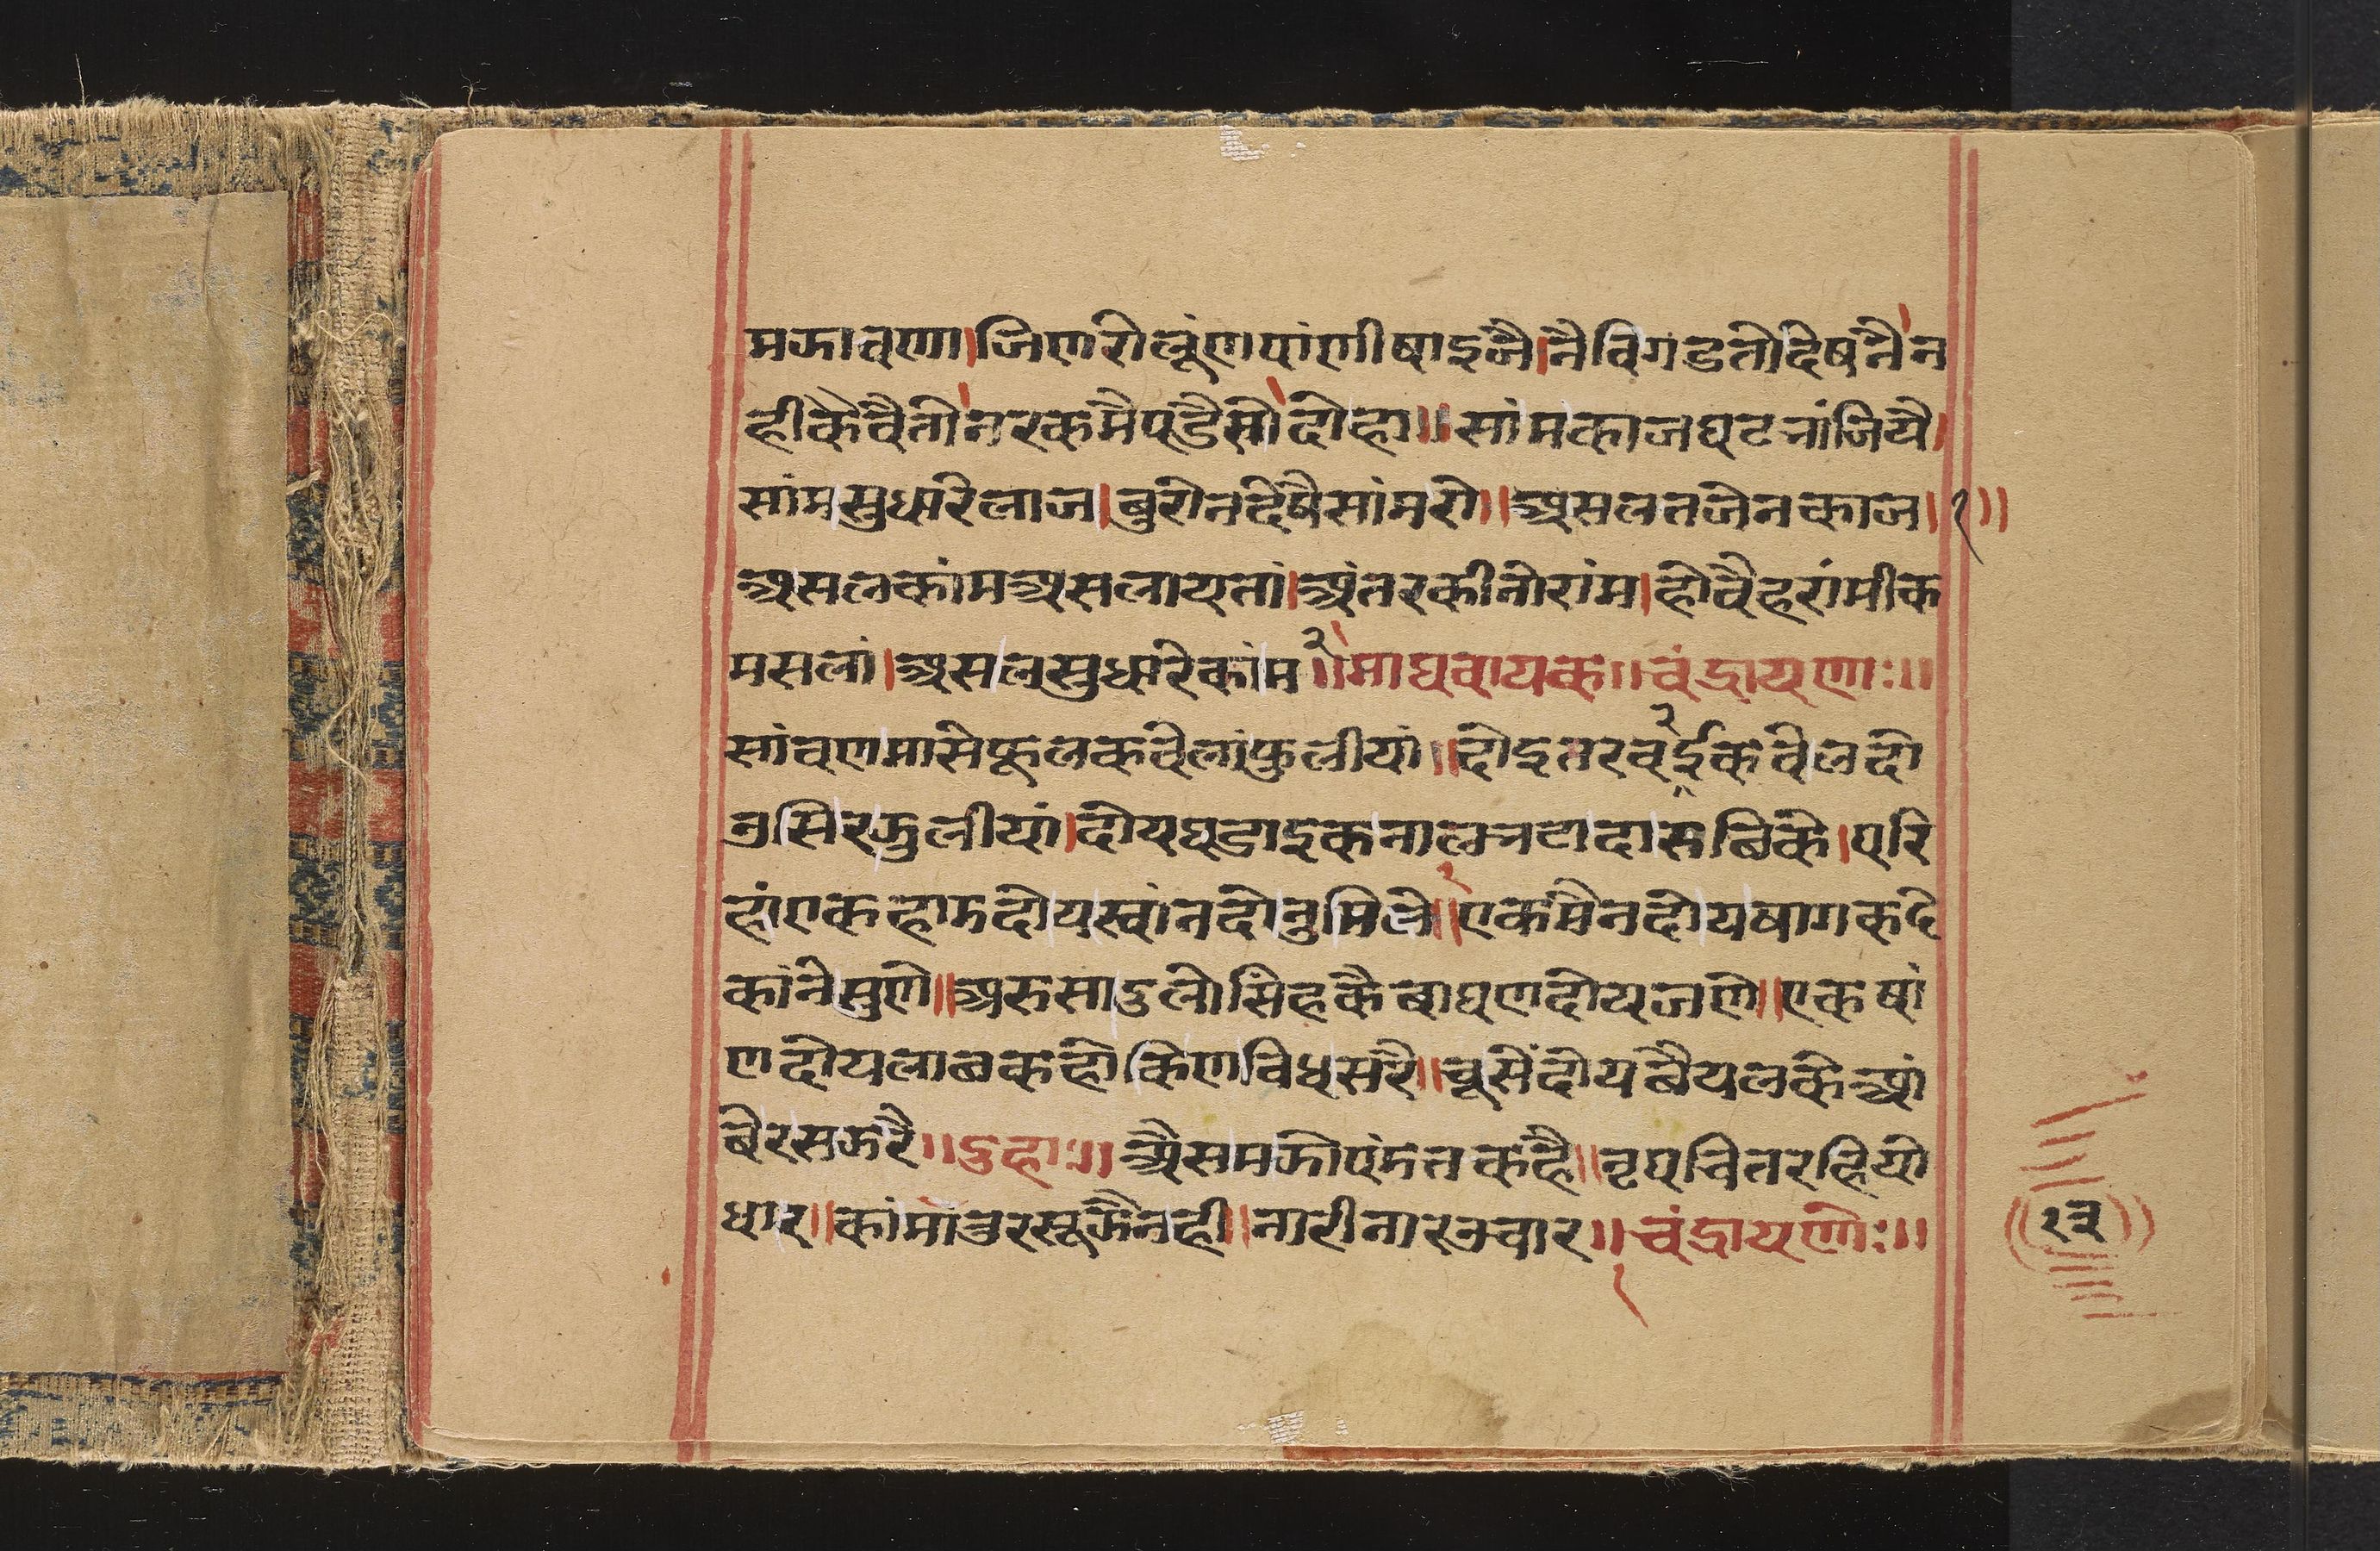 मझावणा।जिणरोलूंणपांणीषाइजै।नैविगडतोदेषनैन
हीकेवैतोनरकमैपडैसोदोहा॥सांमकाजघटनांजियै।
सांमसुधारेलाज।बुरोनदेषैसांमरो॥असलतजेनकाज।१॥
असलकांमअसलायतां।अंतरकीनोरांम।होवैहरांमीक
मसलां।असलसुधारेकांम२॥माघवायक॥चंद्रायणाः॥
सांवणमासेफूलकवेलांफुलीयां॥दोइतरवरईकवेलदो
उसिरझुलीयां।दोयघडाइकनालनटादासबिके।परि
हांएकहाडदोयस्वांनदोनुमिले१॥एकमैनदोयषागकदे
कांनेसुणे॥अरुसादुलोसिंहकैबाघणदोयजणे॥एकषां
णदोयलाबकहोकिणविधसरै॥चूसेंदोयबैयलकेआं
बेरसझरै॥दुहाः॥असमझोपंडतकहै॥नृपचितरहियो
धार॥कांमांउरसूझैनही॥नारीनारउचार॥१चंद्रायणोः॥
((१३))